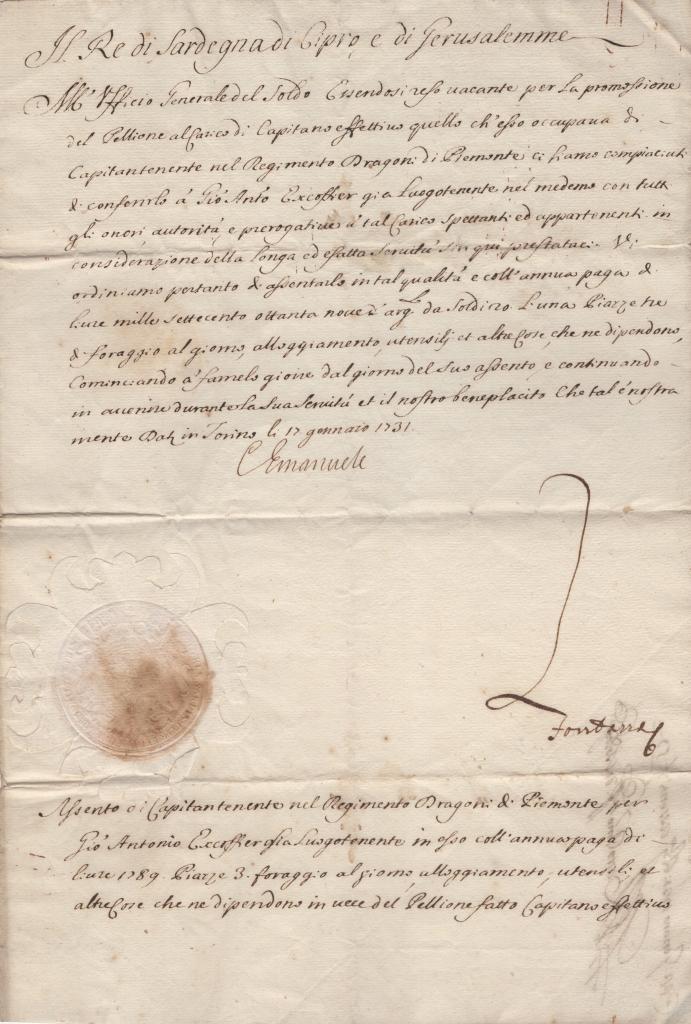 Il Re di Sardegna di Cipro e di Gerusalemme
All' Ufficio Generale del Soldo Essendosi reso vacante per la promossione
del Pellione al Carico di Capitano effettivo quello ch'esso occupava di
Capitantenente nel Regimento Dragoni di Piemonte ci siamo compiaciuti
di conferirlo à Gio Anto Excoffier già Luogotenente nel medemo con tutti
gli onori autorità e prerogative à tal Carico spettanti ed appartenenti in
considerazione della longa ed esatta Servitù sin qui prestataci. Vi
ordiniamo pertanto di assentarlo in tal qualità e coll'annua paga di
livre mille settecento ottanta nove d'argto da soldi 20 l'una Piazze tre
di foraggio al giorno, alloggiamento, utensilj et altre Cose, che ne dipendono,
Cominciando à farnelo gioire dal giorno del suo assento, e continuando
in avvenire durante la Sua Servitù et il nostro beneplacito Che tal è nostra
mente Dat in Torino li 17 gennaio 1731.
C Emanuele
Fontana
Assento di Capitantenente nel Regimento Dragoni di Piemonte per
Gio Antonio Excoffier già Luogotenente in esso coll'annua paga di
livre 1789. Piazze 3. foraggio al giorno, alloggiamento, utensili et
altre Cose che ne dipendono in vece del Pellione fatto Capitano effettivo